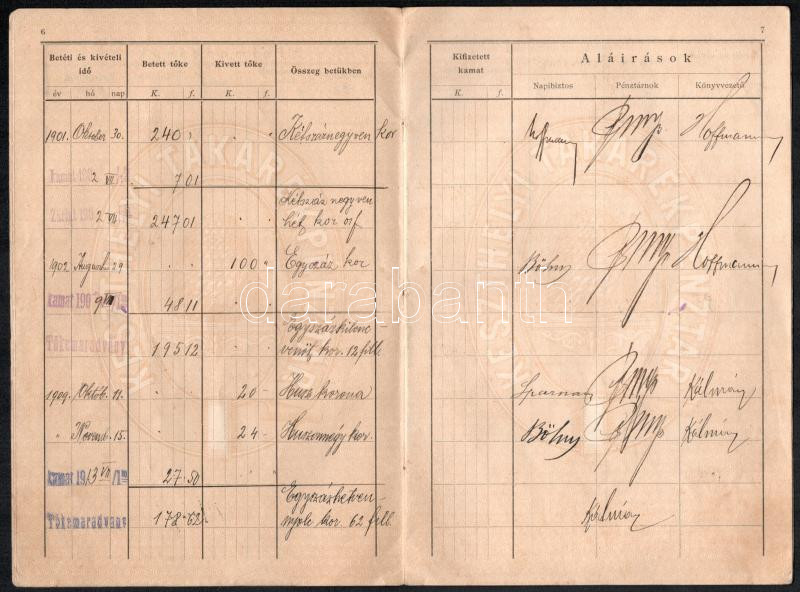 6
Betéti és kivételi idő
Betett tőke
Kivett tőke
Összeg betükben
év hó nap
K. f.
K. f.
1901. Oktober 30. 240 Kétszáznegyven kor
2 VII
7 01
2 VII 247 01 Kétszáz negyven
hét kor 01f
1902 August 29 100 Egyszáz kor
kamat 190 9 VII
48 11
Tőkemaradvány 195 12 Egyszázkilenc
venöt kor. 12 fill
1909. Októb. 11. 20 - Husz korona
" Novemb. 15. 24 - Huszonnégy kor.
kamat 1913 VII
27-50
Tőkemaradvány 178-62 Egyszázhetven-
nyolc kor. 62 fill.
7
Kifizetett kamat
Aláirások
Napibiztos Pénztárnok Könyvvezető
K. f.
Hoffmann
Böhm Hoffmann
Kálmán
Böhm Kálmán
Kálmán
KESZTHELYI TAKARÉKPÉNZTÁR
KESZTHELYI TAKARÉKPÉNZTÁR
darabanth